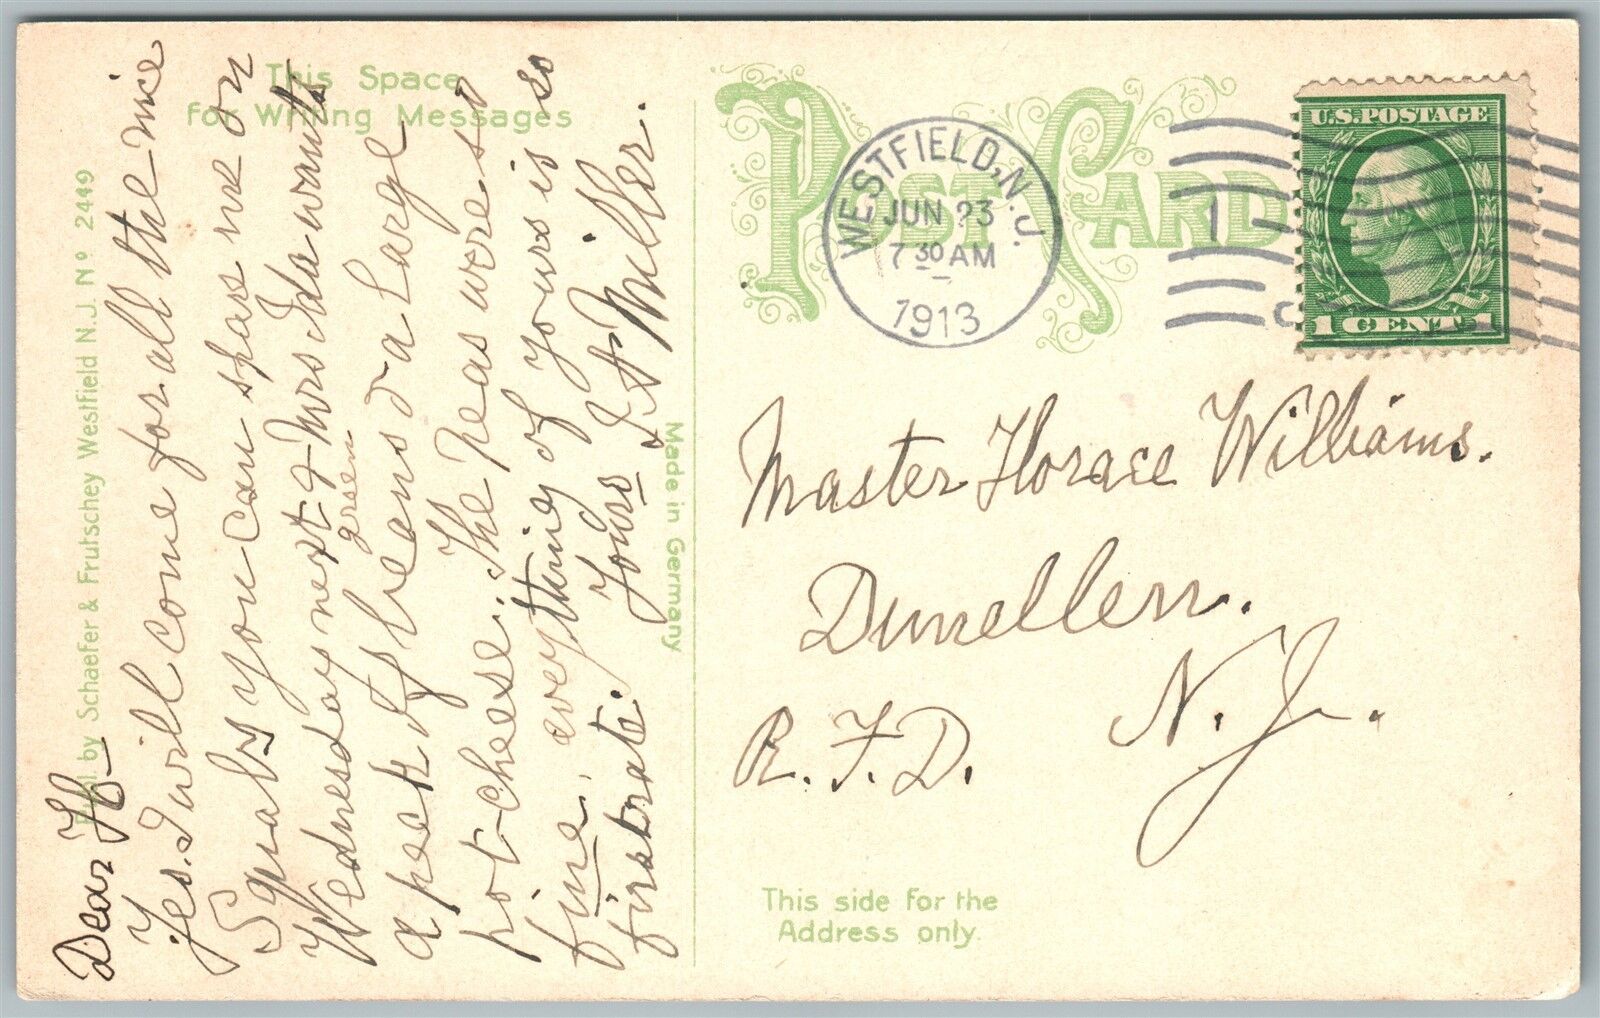 This Space
for Writing Messages
Publ by Schaefer & Frutschey Westfield N.J. Nº 2449
Dear H
Yes. I will come for all the nice
Squabs you can spare me on
Wednesday next & Mrs Ida wants
a peck of green beans & a large
pot-cheese. The Peas were so
fine. everything of yours is so
firstrate. Yours I. A Miller.
Made in Germany
POST CARD
WESTFIELD, N.J.
JUN 23
7 30 AM
1913
1
U.S. POSTAGE
1 CENT 1
Master Horace Williams.
Dunellen.
N. J.
R. F. D.
This side for the
Address only.